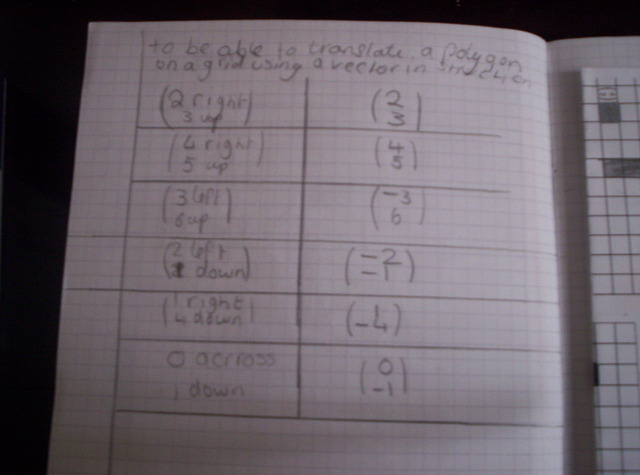 to be able to translate a polygon
on a grid using a vector instruction
(2 right
3 up)
(2
3)
(4 right
5 up)
(4
5)
(3 left
6 up)
(-3
6)
(2 left
1 down)
(-2
-1)
(1 right
4 down)
(1
-4)
0 acrross
1 down
(0
-1)